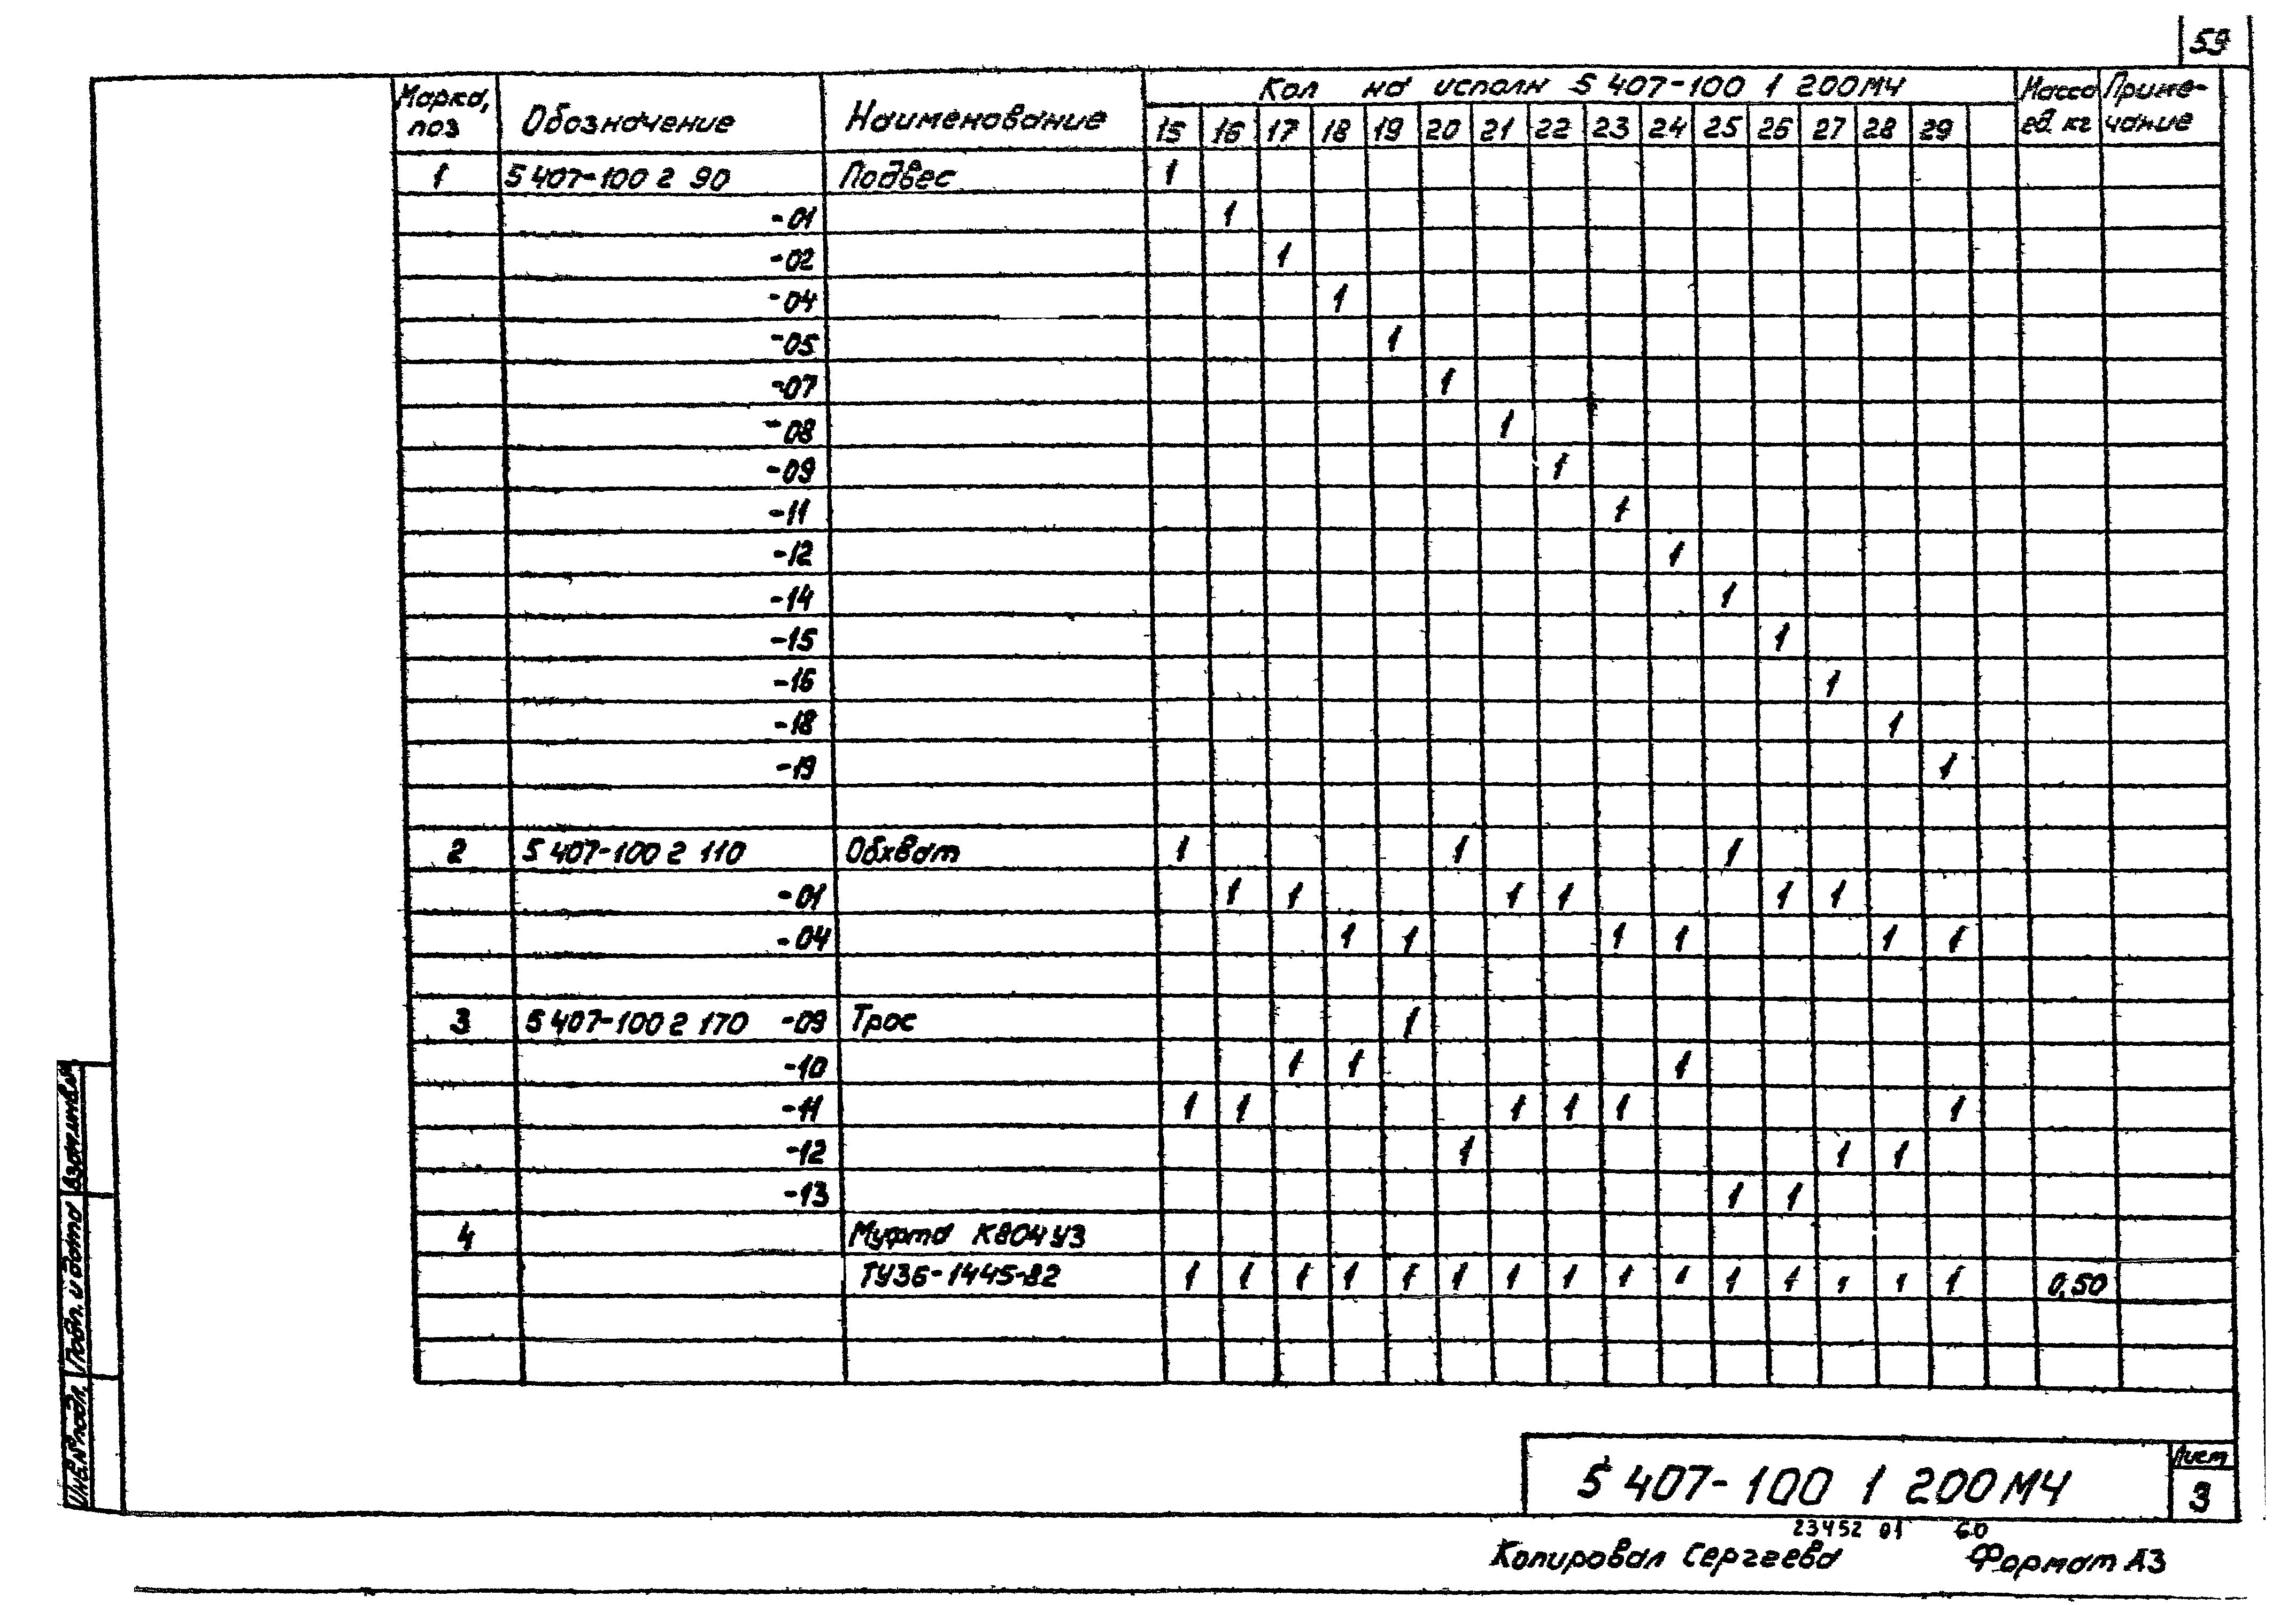 59
Марка, поз Обозначение Наименование Кол на исполн 5 407-100 1 200МЧ Масса ед. кг Приме-чание
15 16 17 18 19 20 21 22 23 24 25 26 27 28 29
1 5 407-100 2 90 Подвес 1
-01 1
-02 1
-04 1
-05 1
-07 1
-08 1
-09 1
-11 1
-12 1
-14 1
-15 1
-16 1
-18 1
-19 1
2 5 407-100 2 110 Обхват 1 1 1
-01 1 1 1 1 1 1
-04 1 1 1 1 1 1
3 5 407-100 2 170 -09 Трос 1
-10 1 1 1
-11 1 1 1 1 1 1
-12 1 1 1
-13 1 1
4 Муфта К804У3
ТУ36-1445-82 1 1 1 1 1 1 1 1 1 1 1 1 1 1 1 0,50
Взам.инв.№
Подп. и дата
Инв.№ подл.
5 407-100 1 200МЧ
Лист
3
23452 01 60
Копировал Сергеева Формат А3